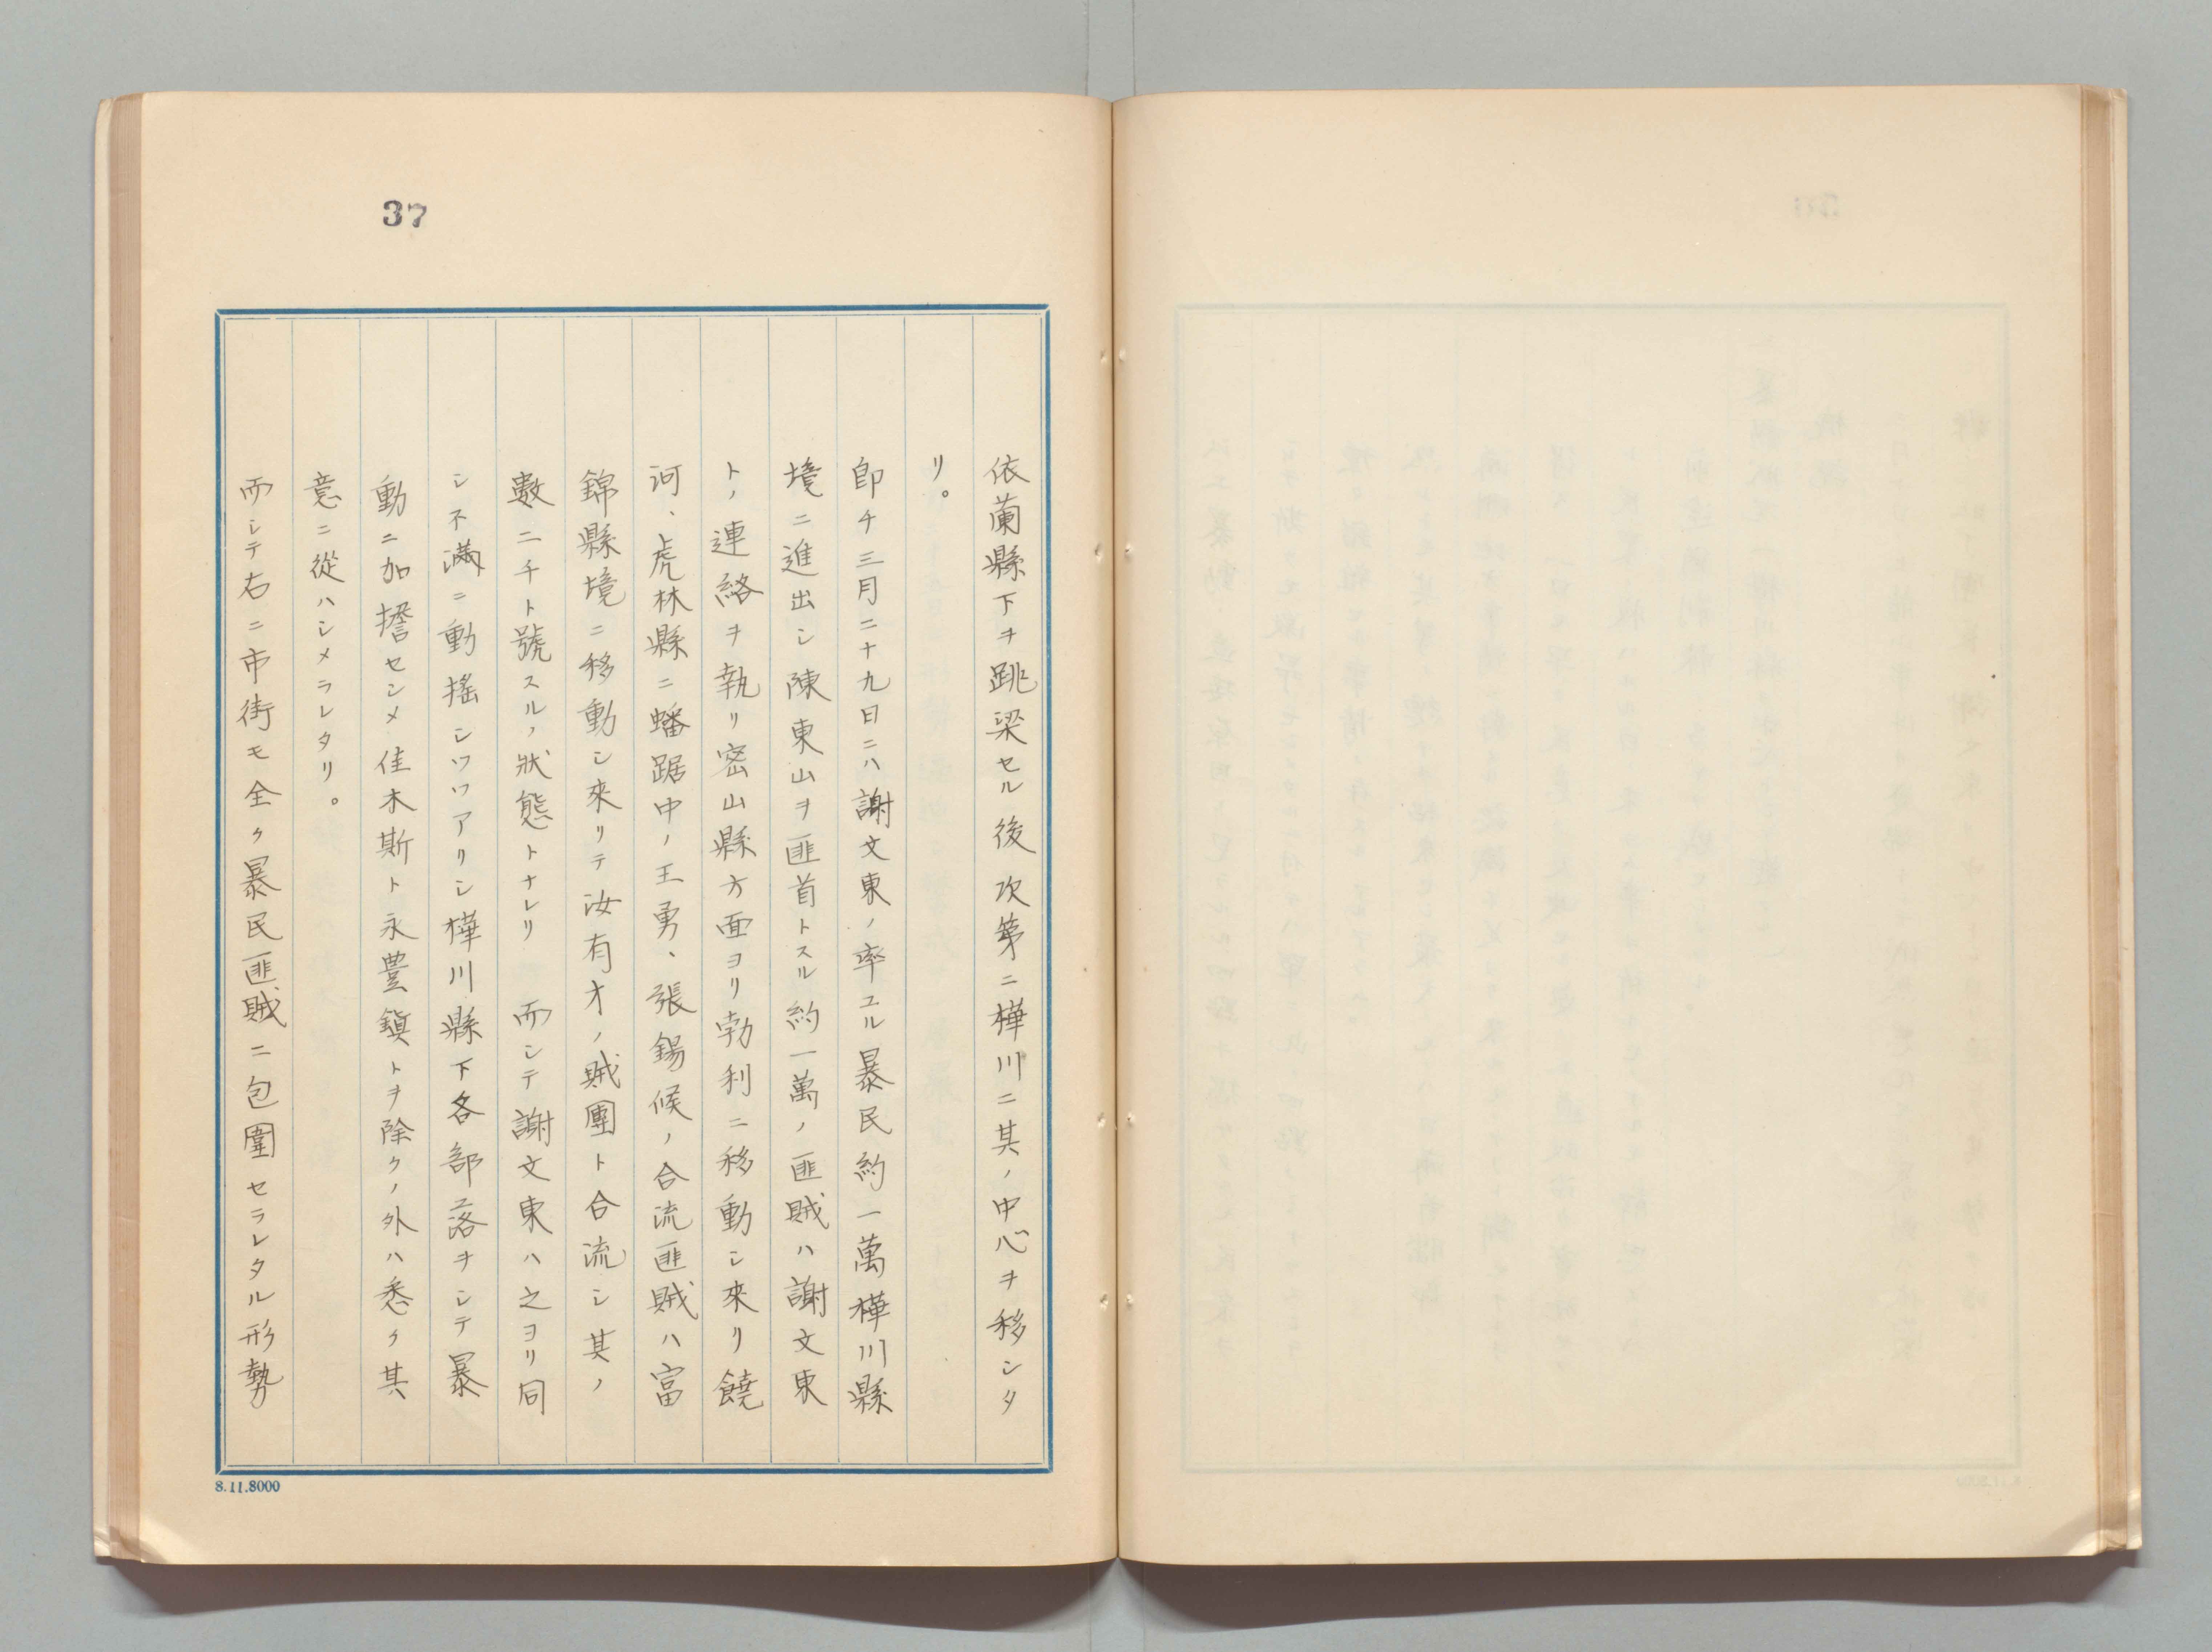 37
依蘭縣下ヲ跳梁セル後次第ニ樺川ニ其ノ中心ヲ移シタ
リ。
卽チ三月二十九日ニハ謝文東ノ率ユル暴民約一萬樺川縣
境ニ進出シ陳東山ヲ匪首トスル約一萬ノ匪賊ハ謝文東
トノ連絡ヲ執リ密山縣方面ヨリ勃利ニ移動シ來リ饒
河、虎林縣ニ蟠踞中ノ王勇、張錫候ノ合流匪賊ハ富
錦縣境ニ移動シ來リテ汝有才ノ賊團ト合流シ其ノ
數二千ト號スルノ狀態トナレリ 而シテ謝文東ハ之ヨリ同
シ不滿ニ動搖シツツアリシ樺川縣下各部落ヲシテ暴
動ニ加擔セシメ佳木斯ト永豊鎭トヲ除クノ外ハ悉ク其
意ニ從ハシメラレタリ。
而シテ右ニ市街モ全ク暴民匪賊ニ包圍セラレタル形勢
8.11.8000